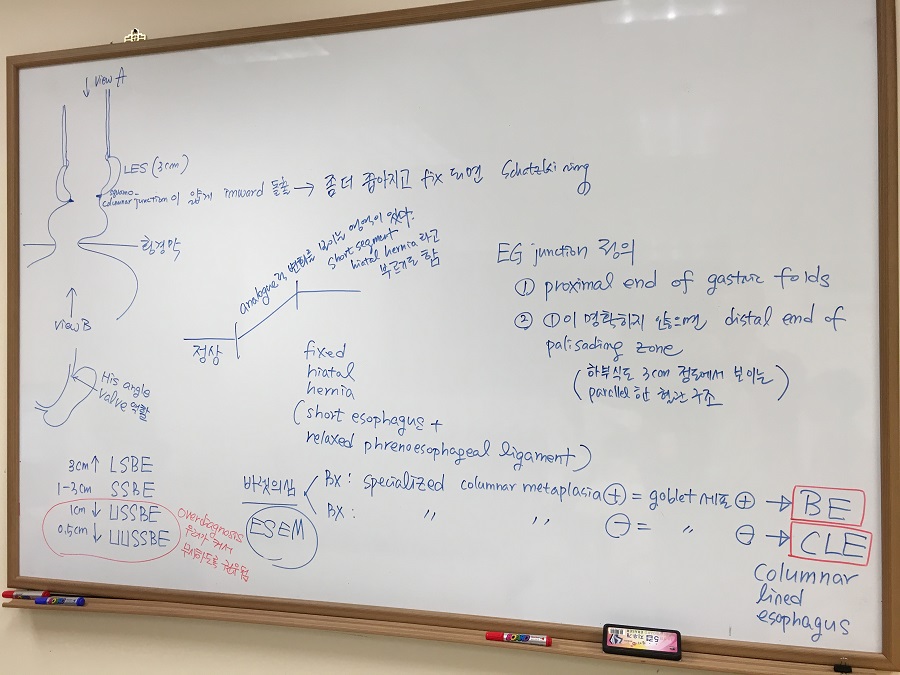 ↓ View A
LES (3cm)
squamo-
columnar junction이 얇게 inward 돌출 → 좀더 좁아지고 fix 되면 Schatzki ring
횡경막
↑
view B
analogue적 변화를 보이는 영역이 있다.
short segment
hiatal hernia 라고
부르기도 함
정상
fixed
hiatal
hernia
(short esophagus +
relaxed phrenoesophageal ligament)
EG junction 정의
① proximal end of gastric folds
② ①이 명확하지 않으면 distal end of
palisading zone
(하부식도 3cm 정도에서 보이는
parallel한 혈관구조)
His angle
valve 역할
3cm↑ LSBE
1-3cm SSBE
1cm↓ USSBE
0.5cm↓ UUSSBE
overdiagnosis
우려가 커서
무시하도록 권유됨
바렛의심
ESEM
Bx: specialized columnar metaplasia ⊕ = goblet 세포 ⊕ → BE
Bx: 〃 〃 ⊖ = 〃 ⊖ → CLE
columnar
lined
esophagus